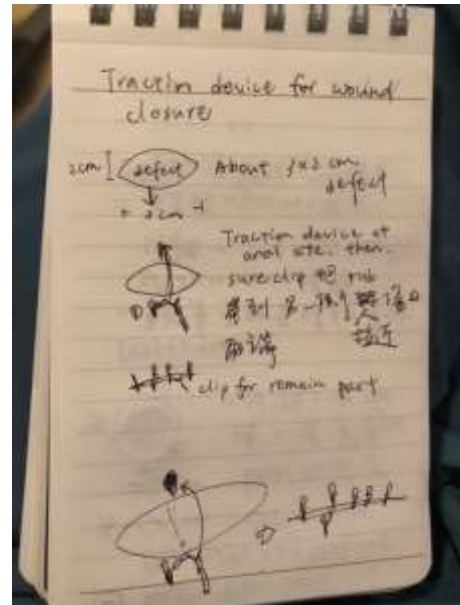 Traction device for wound
closure
2cm defect About 3x2 cm
defect
2cm
Traction device at
anal site, then
sure clip 把 rub
拉到 另一側
兩端 拉近
clip for remain part